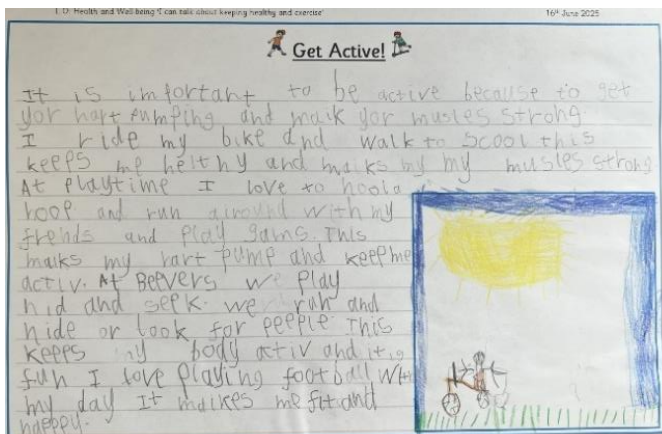 L.O: Health and Well being 'I can talk about keeping healthy and exercise'
16th June 2025
Get Active!
It is imfortant to be active because to get
yor hart pumping and maik yor musles strong.
I ride my bike and walk to scool this
keeps me helthy and maiks my my musles strong
At playtime I love to hoola
hoop and run airound with my
frends and play gams. This
maiks my hart pump and keep me
activ. At Beevers we play
hid and seek. we run and
hide or look for peeple. This
keeps my body activ and it is
fun I love playing football with
my day It maikes me fit and
happpy.